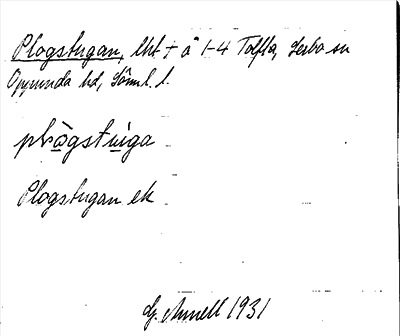 Plogstugan, lht + å 1-4 Tolfta, Lerbo sn
Oppunda hd, Söml. l.
plògstúga
Plogstugan ek
G. Amnell 1931